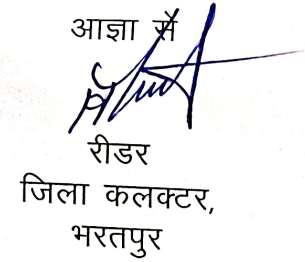 आज्ञा सै
रीडर
जिला कलक्टर,
भरतपुर